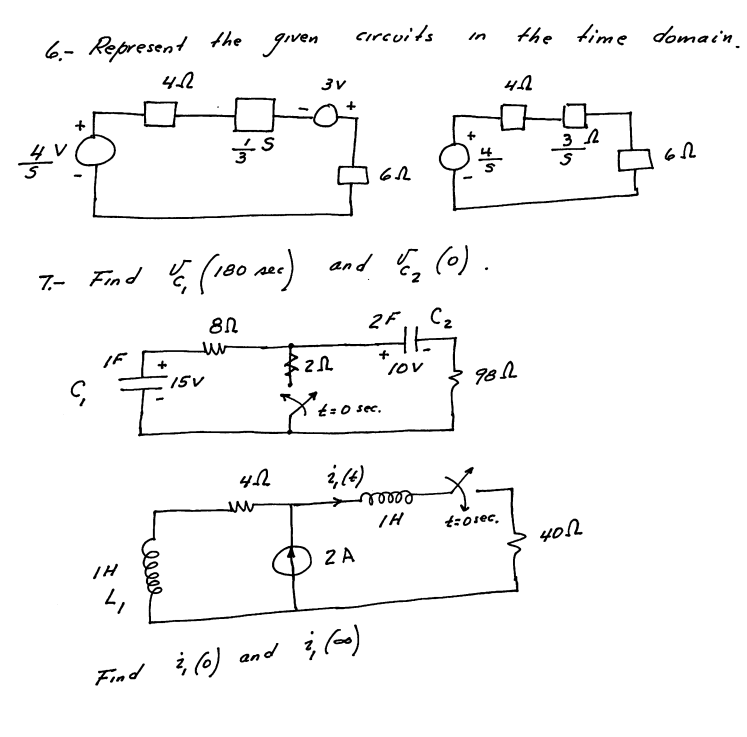 6.- Represent the given circuits in the time domain.
4Ω 3V
+ - +
4/S V
-
1/3 S
6Ω
4Ω
+
4/S
-
3/S Ω
6Ω
7.- Find v_C1 (180 sec) and v_C2 (0).
8Ω 2F C2
1F + 2Ω + -
C1 15V 10V 98Ω
-
t=0 sec.
4Ω i1(t)
1H t=0 sec.
40Ω
2A
1H
L1
Find i1(0) and i1(∞)